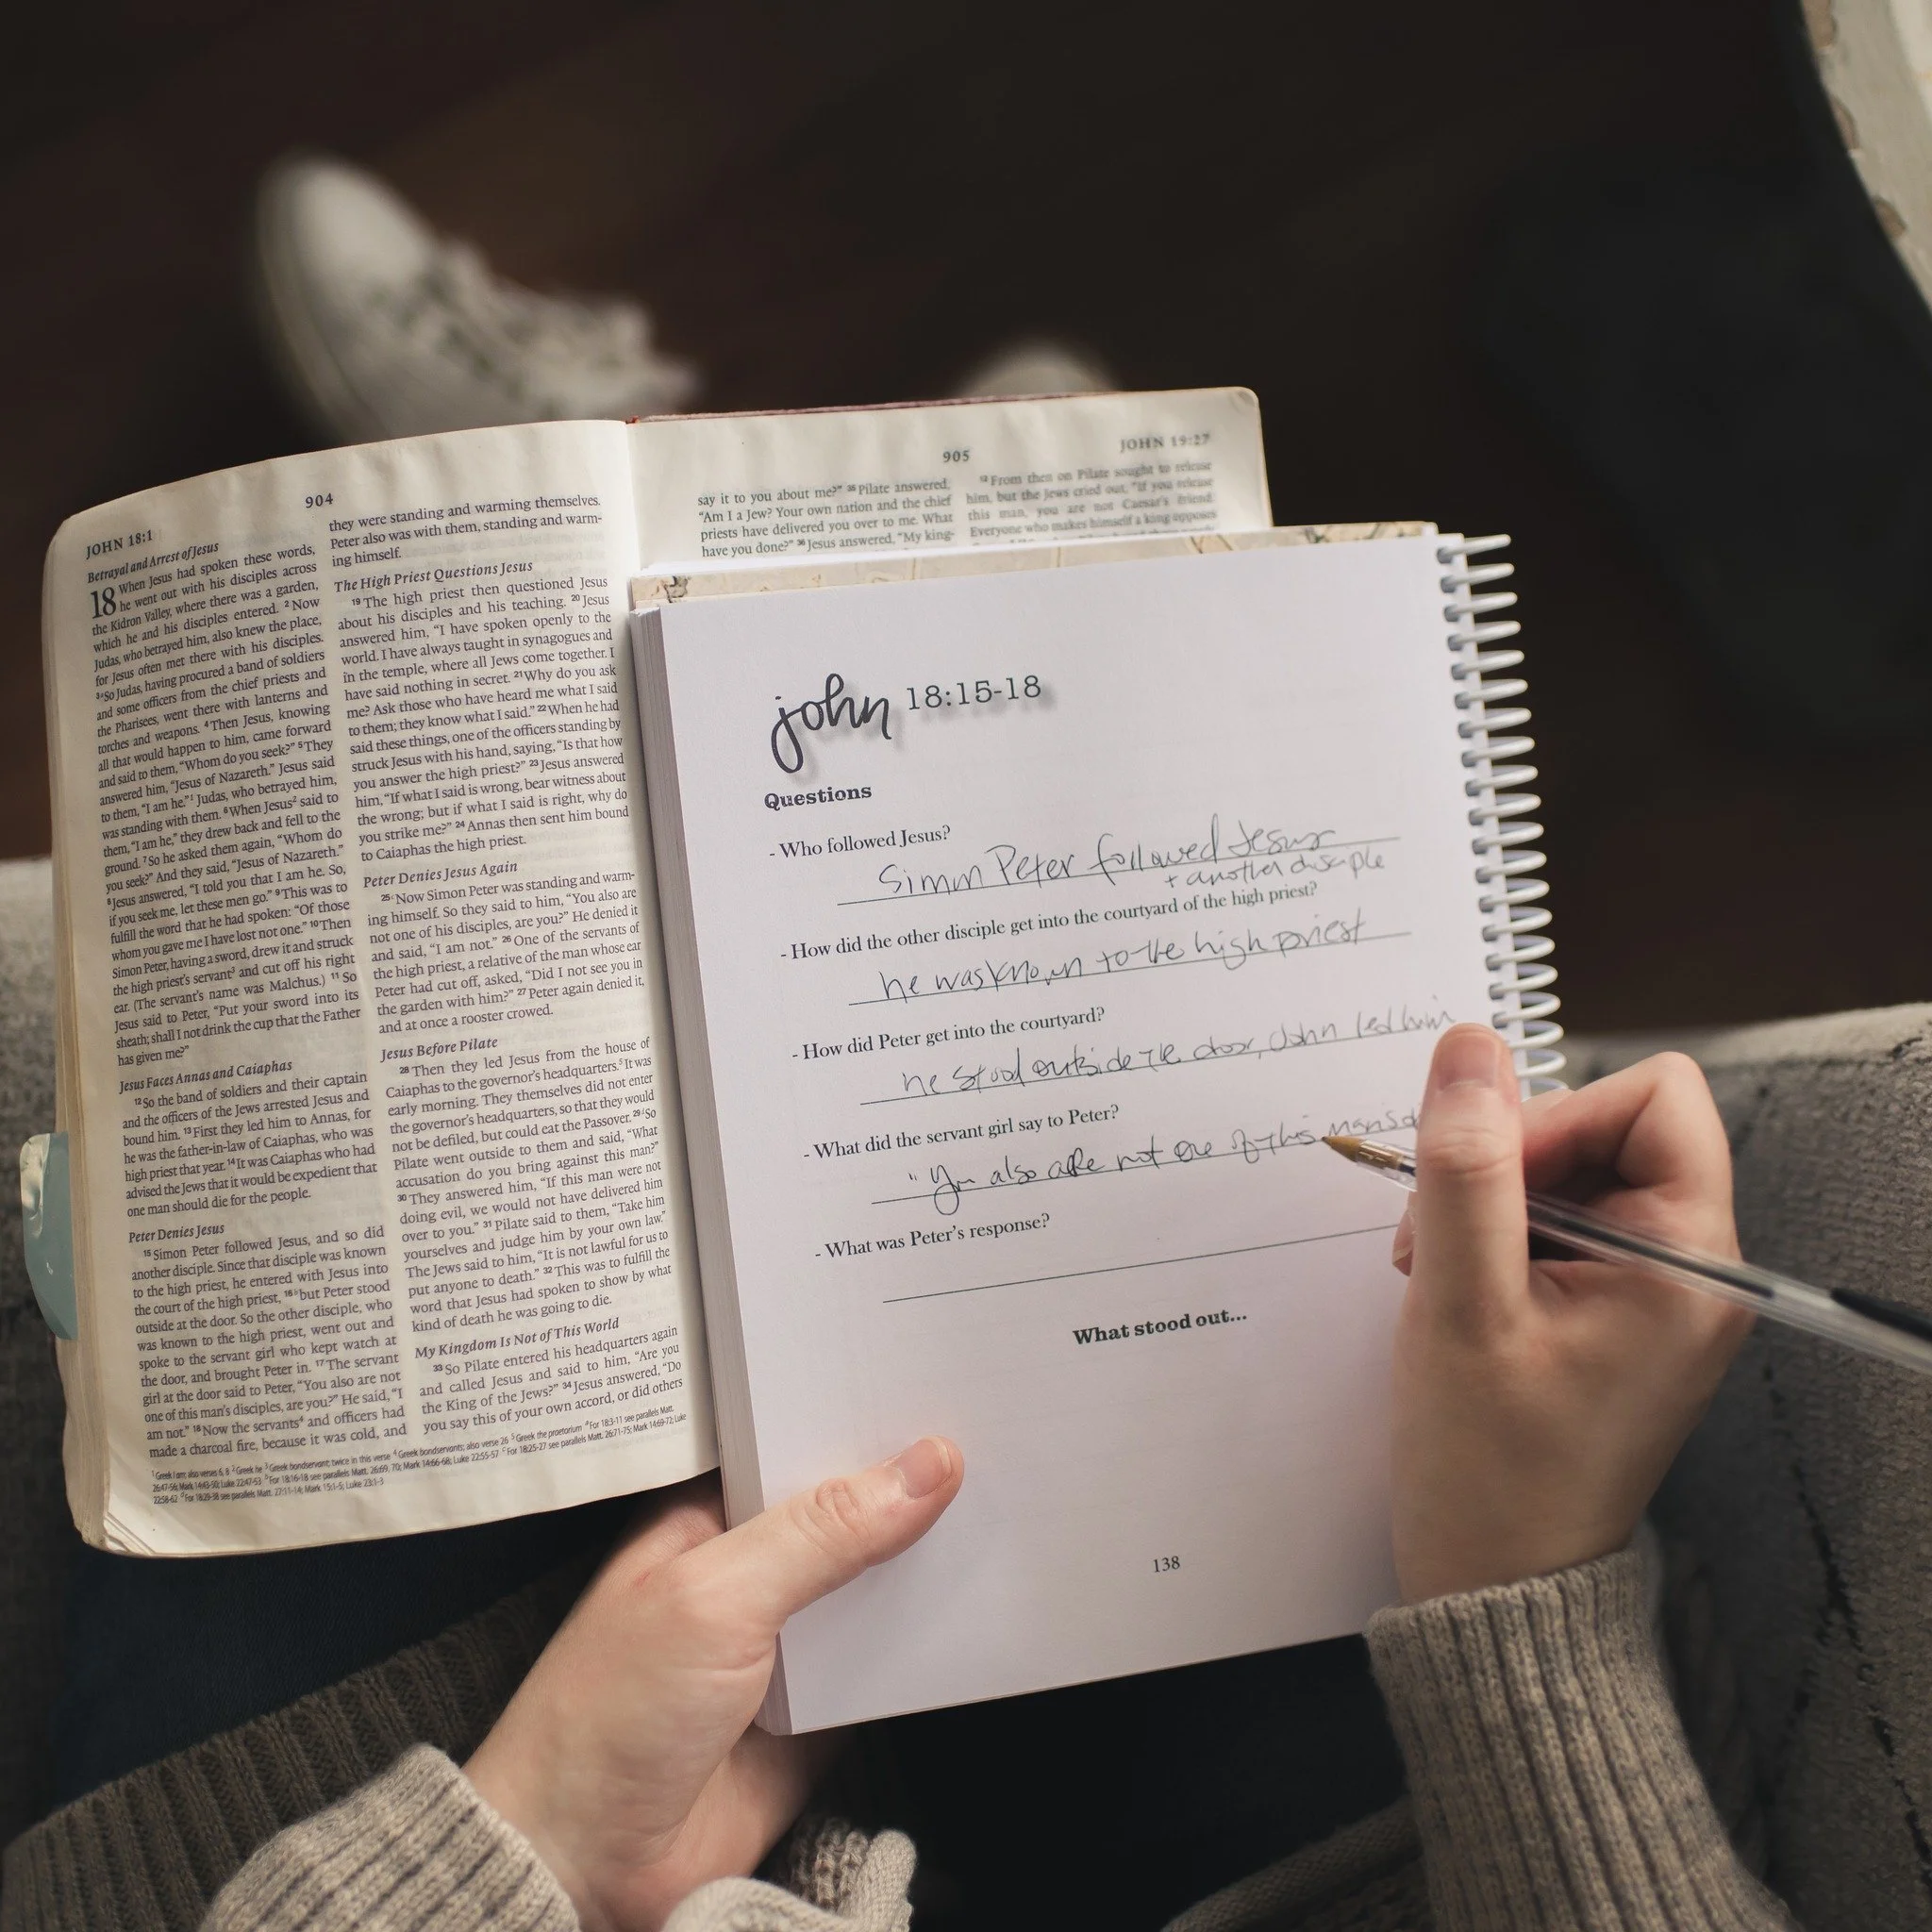 904
JOHN 18:1
Betrayal and Arrest of Jesus
18 When Jesus had spoken these words,
he went out with his disciples across
the Kidron Valley, where there was a garden,
which he and his disciples entered. 2 Now
Judas, who betrayed him, also knew the place,
for Jesus often met there with his disciples.
3 So Judas, having procured a band of soldiers
and some officers from the chief priests and
the Pharisees, went there with lanterns and
torches and weapons. 4 Then Jesus, knowing
all that would happen to him, came forward
and said to them, “Whom do you seek?” 5 They
answered him, “Jesus of Nazareth.” Jesus said
to them, “I am he.”1 Judas, who betrayed him,
was standing with them. 6 When Jesus2 said to
them, “I am he,” they drew back and fell to the
ground. 7 So he asked them again, “Whom do
you seek?” And they said, “Jesus of Nazareth.”
8 Jesus answered, “I told you that I am he. So,
if you seek me, let these men go.” 9 This was to
fulfill the word that he had spoken: “Of those
whom you gave me I have lost not one.” 10 Then
Simon Peter, having a sword, drew it and struck
the high priest's servant3 and cut off his right
ear. (The servant's name was Malchus.) 11 So
Jesus said to Peter, “Put your sword into its
sheath; shall I not drink the cup that the Father
has given me?”
Jesus Faces Annas and Caiaphas
12 So the band of soldiers and their captain
and the officers of the Jews arrested Jesus and
bound him. 13 First they led him to Annas, for
he was the father-in-law of Caiaphas, who was
high priest that year. 14 It was Caiaphas who had
advised the Jews that it would be expedient that
one man should die for the people.
Peter Denies Jesus
15 Simon Peter followed Jesus, and so did
another disciple. Since that disciple was known
to the high priest, he entered with Jesus into
the court of the high priest, 16 b but Peter stood
outside at the door. So the other disciple, who
was known to the high priest, went out and
spoke to the servant girl who kept watch at
the door, and brought Peter in. 17 The servant
girl at the door said to Peter, “You also are not
one of this man's disciples, are you?” He said, “I
am not.” 18 Now the servants4 and officers had
made a charcoal fire, because it was cold, and
they were standing and warming themselves.
Peter also was with them, standing and warm-
ing himself.
The High Priest Questions Jesus
19 The high priest then questioned Jesus
about his disciples and his teaching. 20 Jesus
answered him, “I have spoken openly to the
world. I have always taught in synagogues and
in the temple, where all Jews come together. I
have said nothing in secret. 21 Why do you ask
me? Ask those who have heard me what I said
to them; they know what I said.” 22 When he had
said these things, one of the officers standing by
struck Jesus with his hand, saying, “Is that how
you answer the high priest?” 23 Jesus answered
him, “If what I said is wrong, bear witness about
the wrong; but if what I said is right, why do
you strike me?” 24 Annas then sent him bound
to Caiaphas the high priest.
Peter Denies Jesus Again
25 c Now Simon Peter was standing and warm-
ing himself. So they said to him, “You also are
not one of his disciples, are you?” He denied it
and said, “I am not.” 26 One of the servants of
the high priest, a relative of the man whose ear
Peter had cut off, asked, “Did I not see you in
the garden with him?” 27 Peter again denied it,
and at once a rooster crowed.
Jesus Before Pilate
28 Then they led Jesus from the house of
Caiaphas to the governor's headquarters.5 It was
early morning. They themselves did not enter
the governor's headquarters, so that they would
not be defiled, but could eat the Passover. 29 d So
Pilate went outside to them and said, “What
accusation do you bring against this man?”
30 They answered him, “If this man were not
doing evil, we would not have delivered him
over to you.” 31 Pilate said to them, “Take him
yourselves and judge him by your own law.”
The Jews said to him, “It is not lawful for us to
put anyone to death.” 32 This was to fulfill the
word that Jesus had spoken to show by what
kind of death he was going to die.
My Kingdom Is Not of This World
33 So Pilate entered his headquarters again
and called Jesus and said to him, “Are you
the King of the Jews?” 34 Jesus answered, “Do
you say this of your own accord, or did others
1 Greek I am; also verses 6, 8 2 Greek he 3 Greek bondservant; twice in this verse 4 Greek bondservants; also verse 26 5 Greek the praetorium a For 18:3-11 see parallels Matt.
26:47-56; Mark 14:43-50; Luke 22:47-53 b For 18:16-18 see parallels Matt. 26:69, 70; Mark 14:66-68; Luke 22:55-57 c For 18:25-27 see parallels Matt. 26:71-75; Mark 14:69-72; Luke
22:58-62 d For 18:29-38 see parallels Matt. 27:11-14; Mark 15:1-5; Luke 23:1-3
905
JOHN 19:27
say it to you about me?” 35 Pilate answered,
“Am I a Jew? Your own nation and the chief
priests have delivered you over to me. What
have you done?” 36 Jesus answered, “My king-
12 From then on Pilate sought to release
him, but the Jews cried out, “If you release
this man, you are not Caesar's friend.
Everyone who makes himself a king opposes
john 18:15-18
Questions
- Who followed Jesus?
Simon Peter followed Jesus
+ another disciple
- How did the other disciple get into the courtyard of the high priest?
he was known to the high priest
- How did Peter get into the courtyard?
he stood outside the door, John led him
- What did the servant girl say to Peter?
"You also are not one of this mans
- What was Peter's response?
What stood out...
138